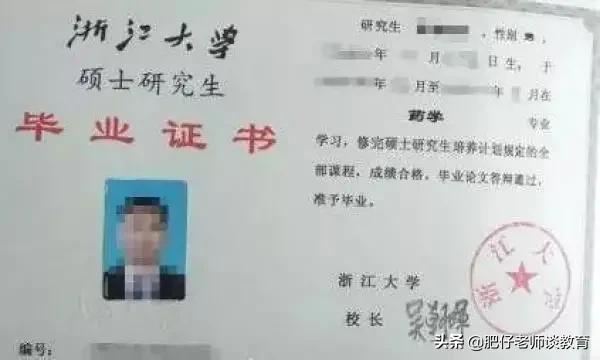 浙江大学
硕士研究生
毕业证书
编号:
研究生 ,性别 男,
年 月 日生,于
年 月至 年 月在
药学 专业
学习,修完硕士研究生培养计划规定的全
部课程,成绩合格,毕业论文答辩通过,
准予毕业。
浙江大学
校长
浙江大学
头条 @肥仔老师谈教育